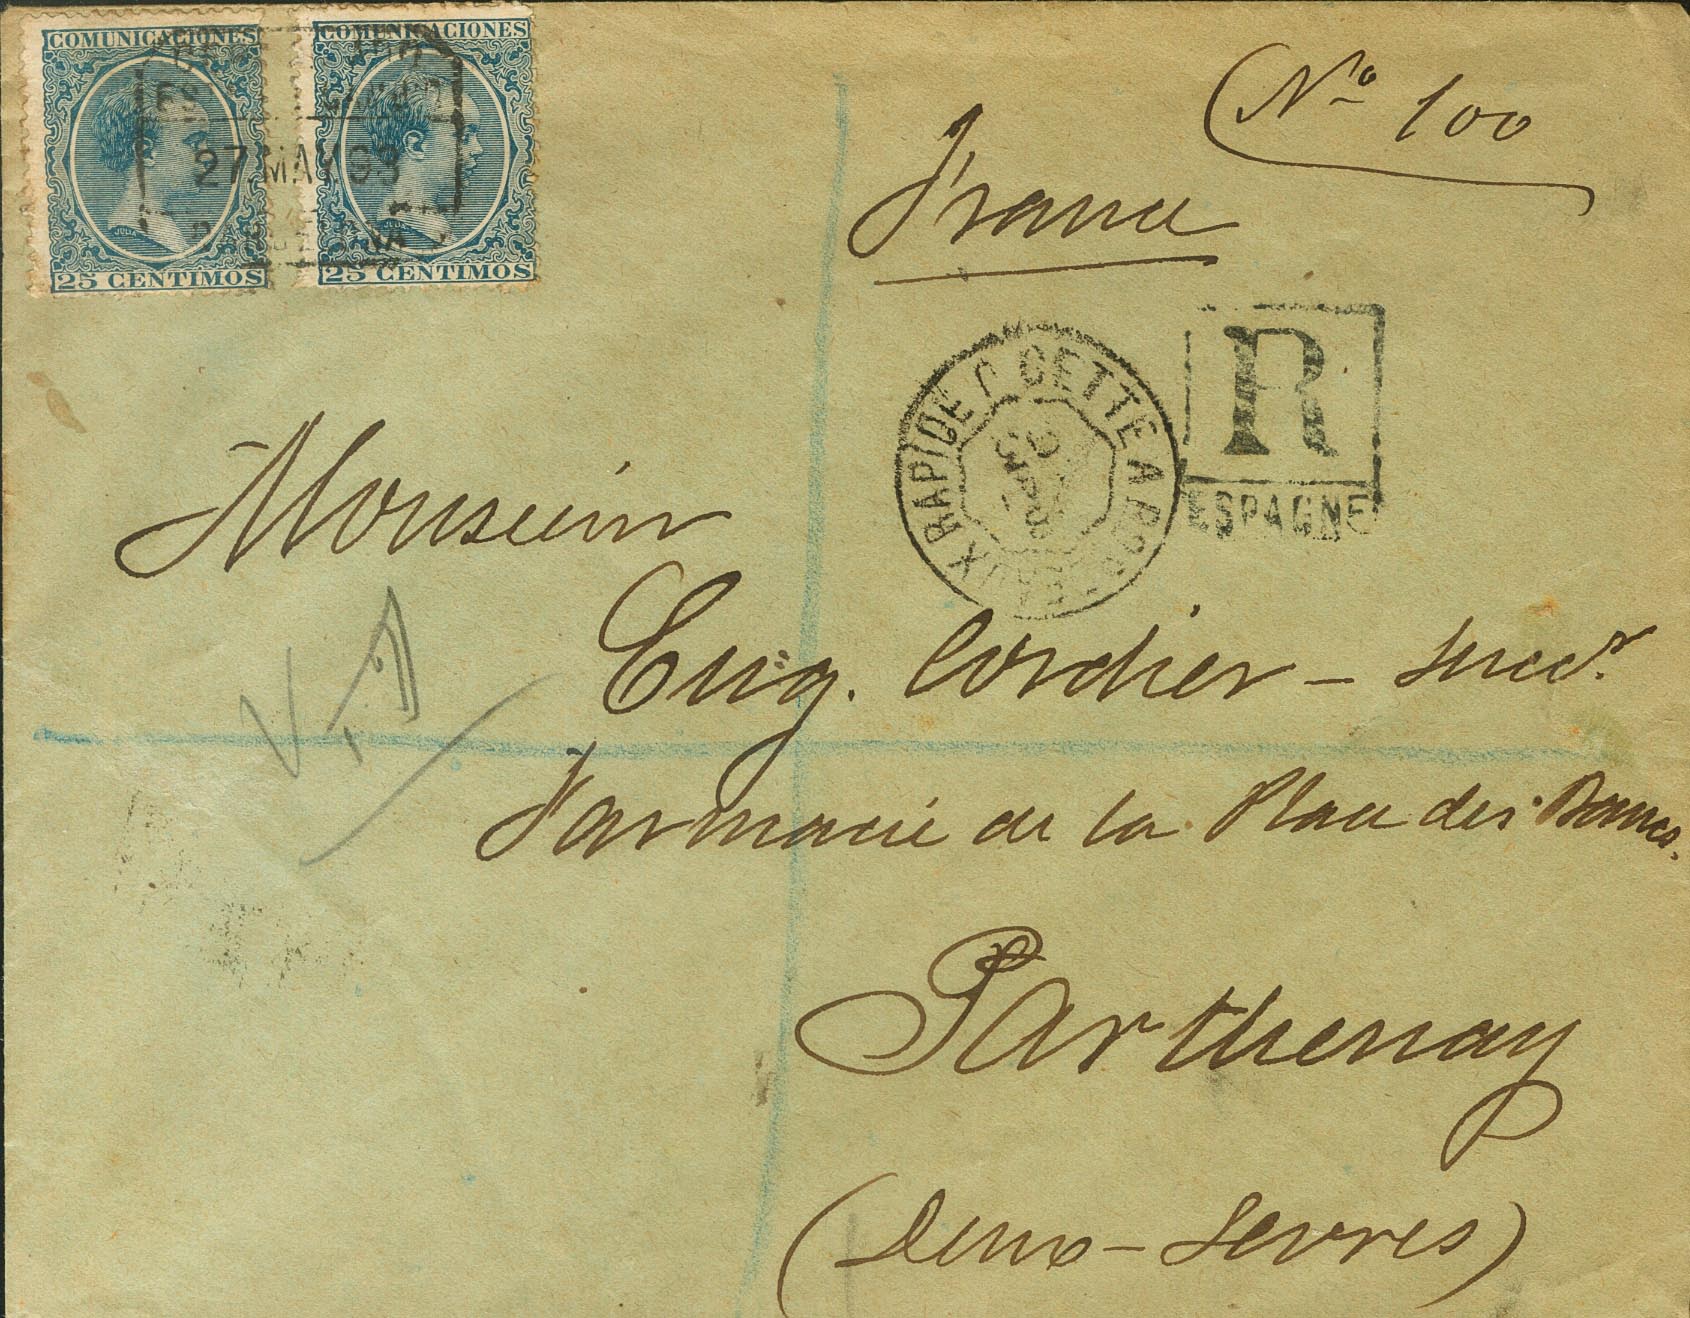 COMUNICACIONES COMUNICACIONES
27.MAY.99
JULIA JULIA
25 CENTIMOS 25 CENTIMOS
Nº 100
France
R
ESPAGNE
RAPIDE CETTE A
Monsieur
Eug. Cordier - Succr.
Farmacie de la Place des Bancs.
Parthenay
(Deux-Sevres)